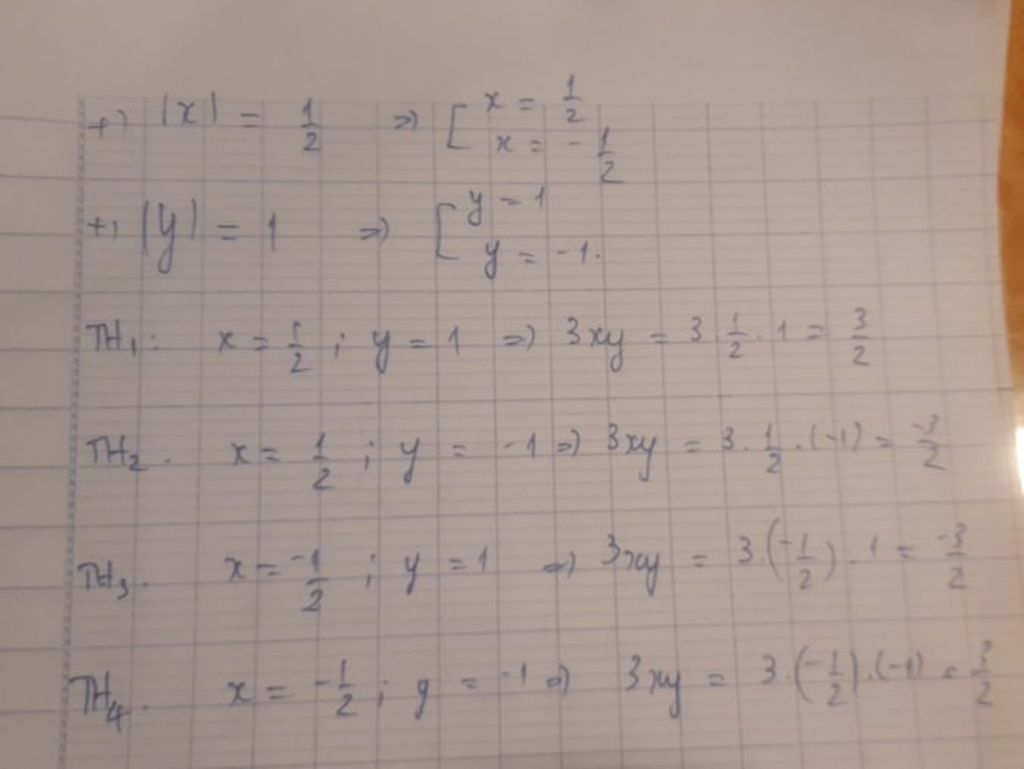 +) |x| = 1/2 => [ x = 1/2
x = -1/2
+) |y| = 1 => [ y = 1
y = -1.
TH1: x = 1/2 ; y = 1 => 3xy = 3.1/2.1 = 3/2
TH2. x = 1/2 ; y = -1 => 3xy = 3.1/2.(-1) = -3/2
TH3. x = -1/2 ; y = 1 => 3xy = 3.(-1/2).1 = -3/2
TH4. x = -1/2 ; y = -1 => 3xy = 3.(-1/2).(-1) = 3/2